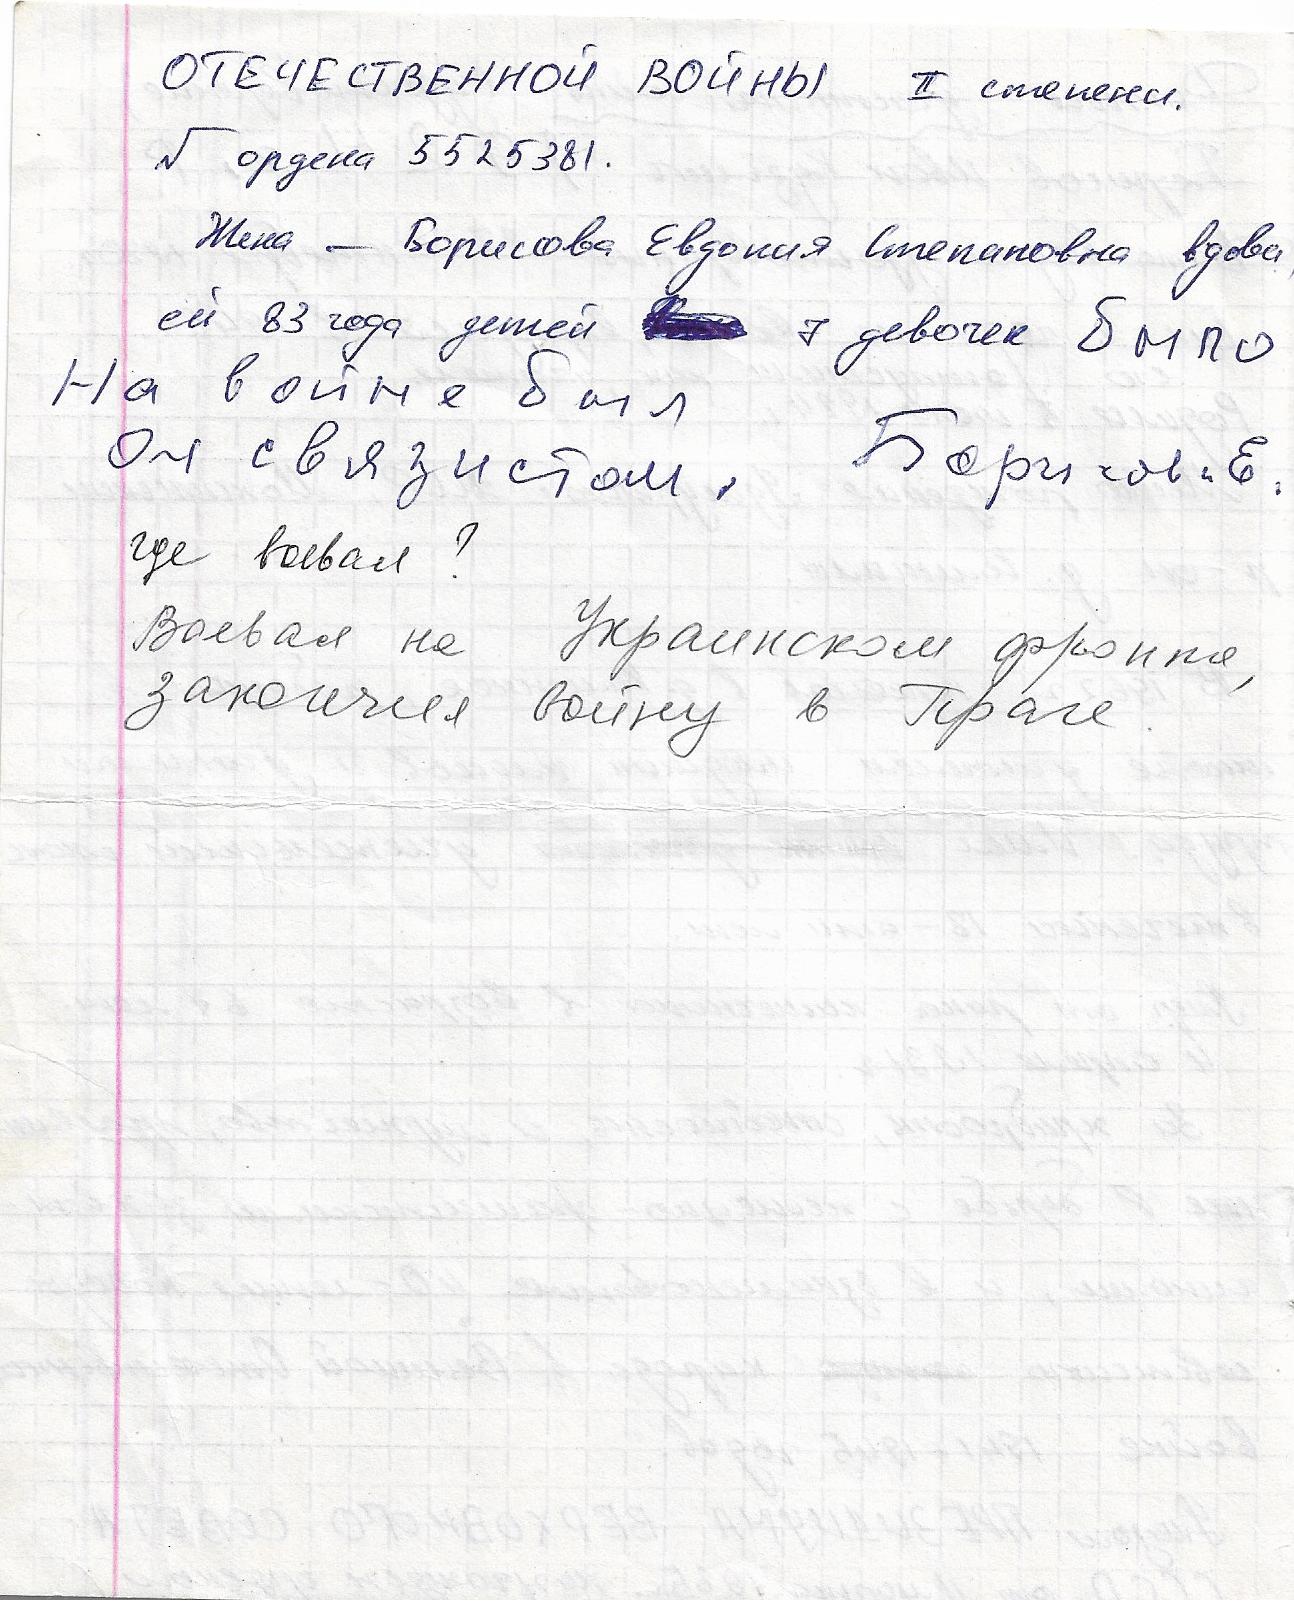 ОТЕЧЕСТВЕННОЙ ВОЙНЫ II степени.
№ ордена 5525381.
Жена — Борисова Евдокия Степановна вдова,
ей 83 года детей 7 девочек было
На войне был
Он связистом. Борисова Е.
где воевал?
Воевал на Украинском фронте,
закончил войну в Праге.